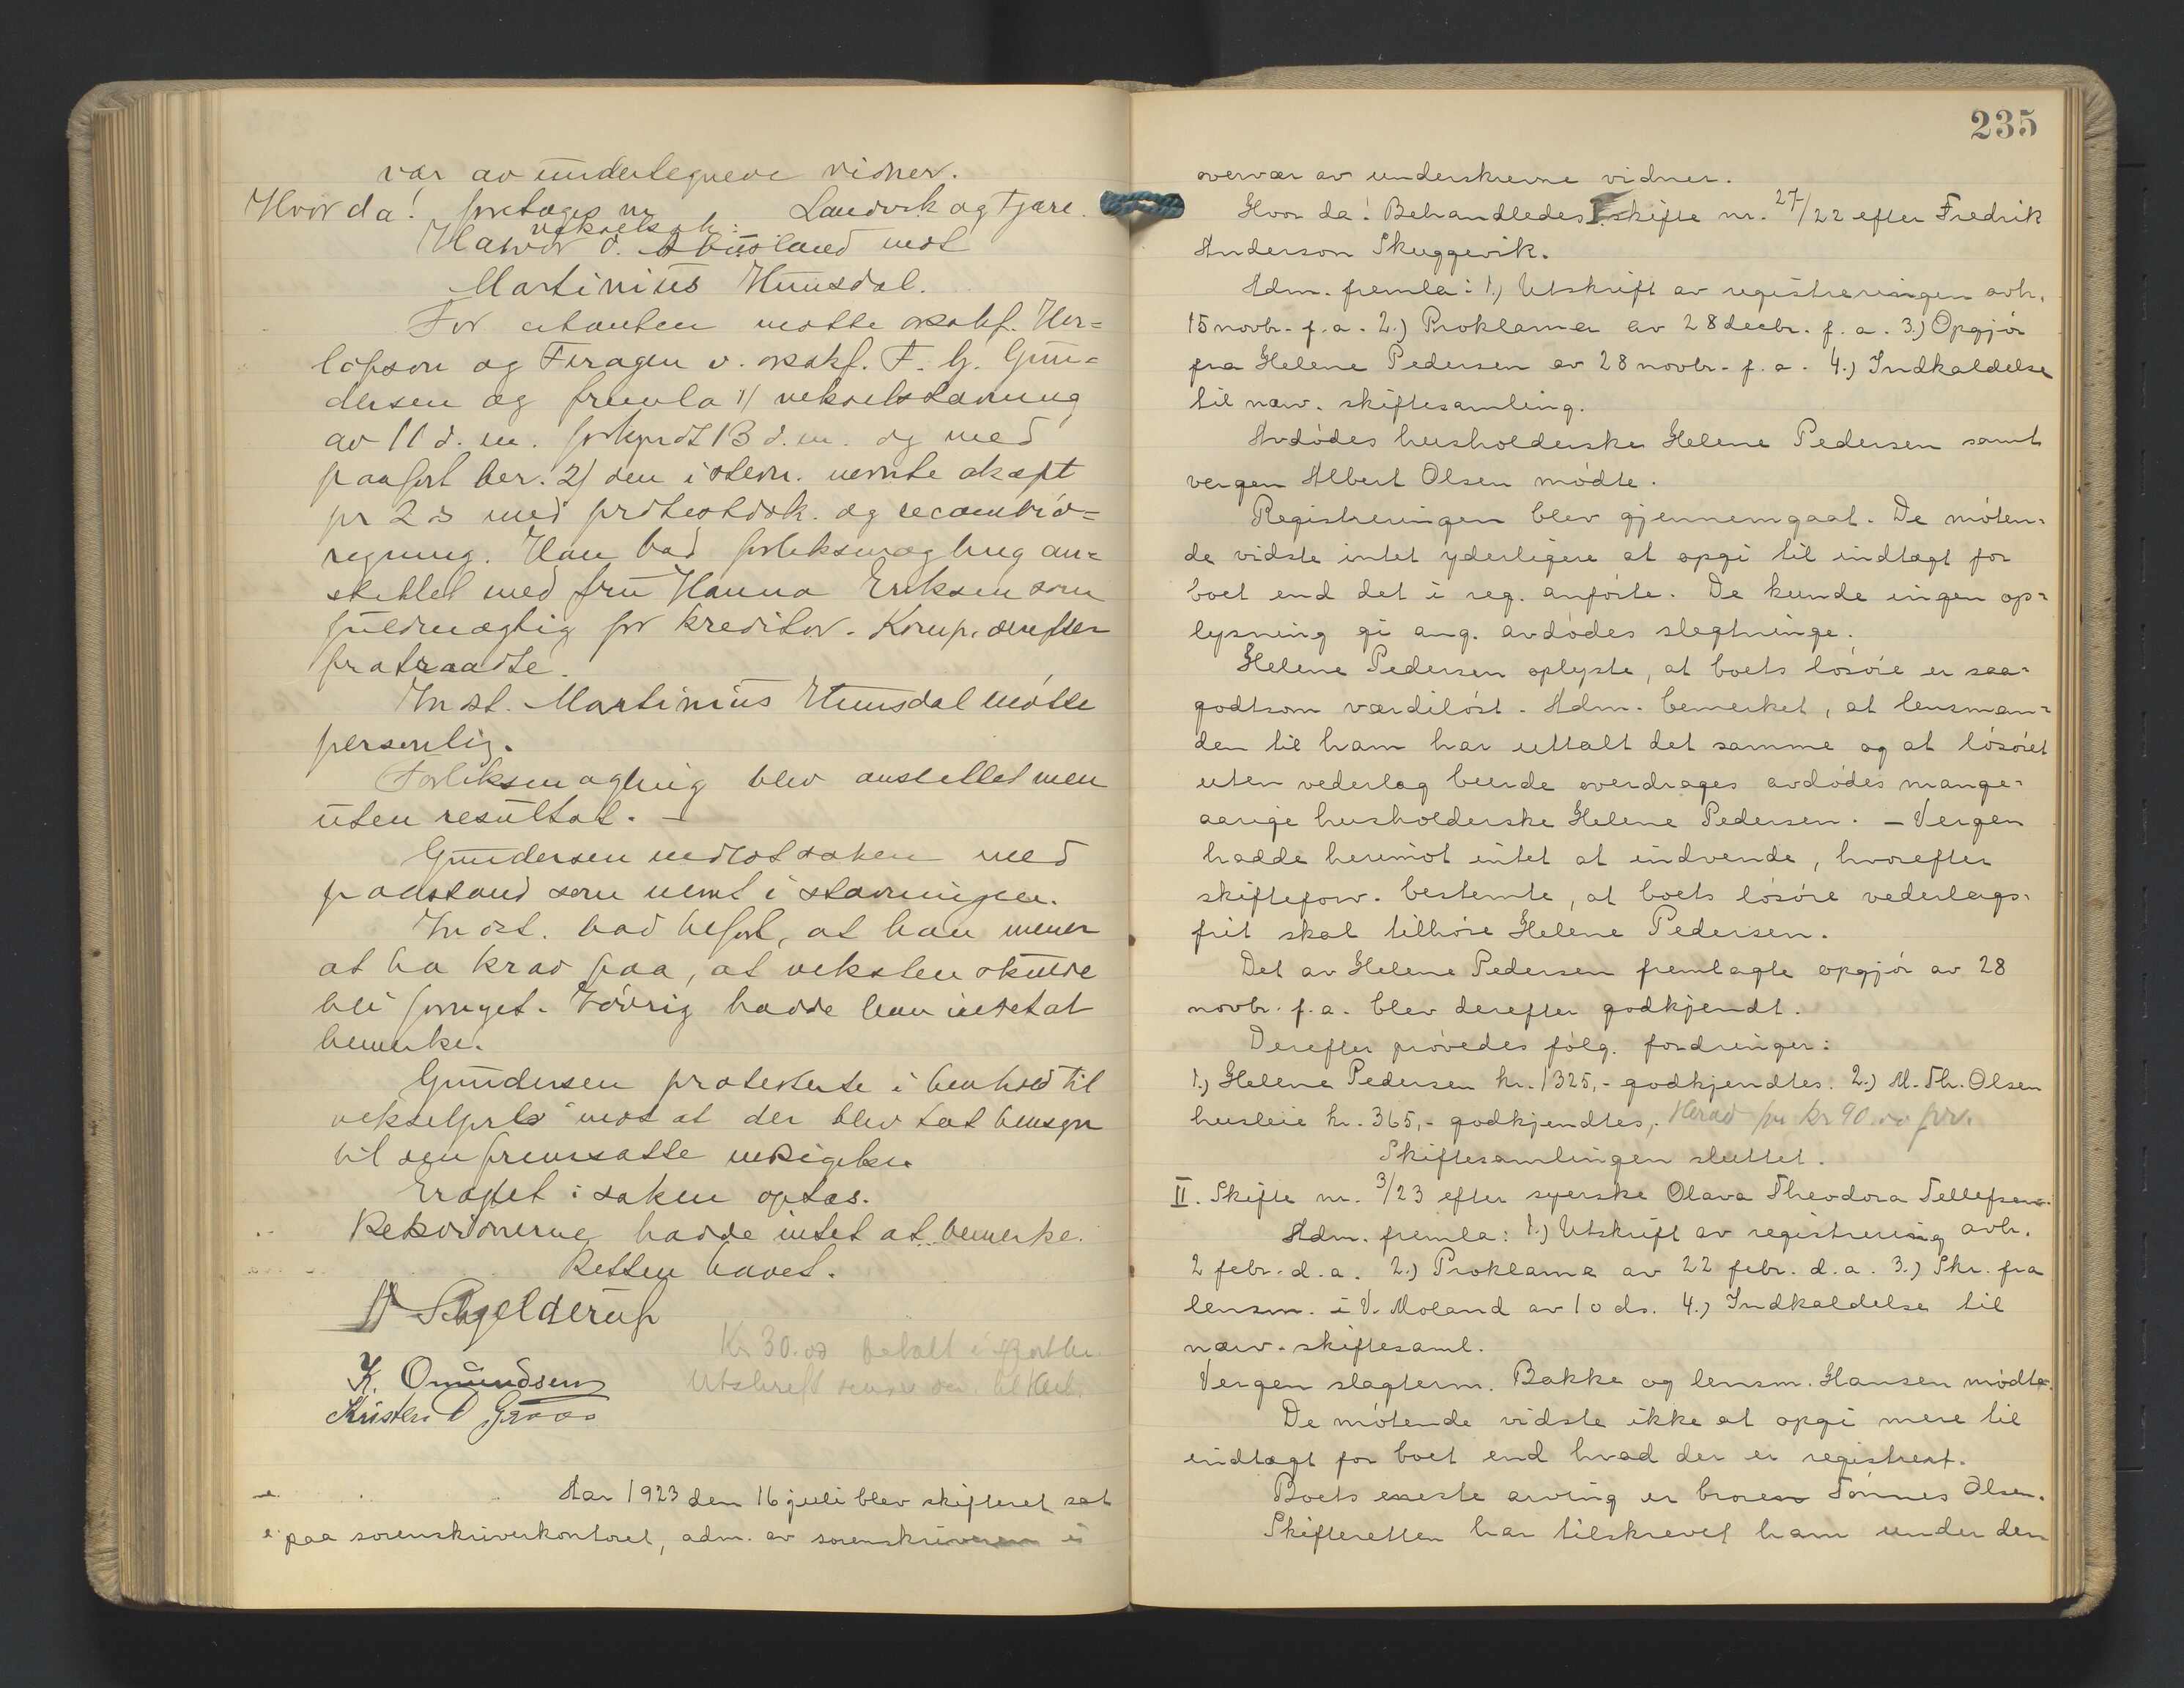 vær av undertegnede vidner.
Hvor da! foretages nr Landvik og Fjære.
vekselsak:
Hawor O. Abusland mot
Martinius Hunsdal.
For citanten møtte orskf. Her-
lofson og Feragen v. orskf. F. G. Gun-
dersen og fremla 1) vekselstevning
av 11 d. m. forkyndt 13 d. m. og med
paaført ber. 2) den i stevn. nevnte aksept
pr 2 s med protestdok. og recambio-
regning. Han bad forliksmægling an-
stillet med fru Hanna Eriksen som
fuldmægtig for kreditor. Komp. derefter
fratraadte.
Indst. Martinius Hunsdal møtte
personlig.
Forliksmægling blev anstillet men
uten resultat. —
Gundersen indlot saken med
paastand som nevnt i stevningen.
Indst. bad tilført, at han mener
at ha krav paa, at vekslen skulde
bli fornyet. Forøvrig hadde han intet at
bemerke.
Gundersen protesterte i henhold til
mot at der blev tat hensyn
til den fremsatte indsigelse.
Eragtet i saken optas.
hadde intet at bemerke.
Retten hævet.
Schjelderup
Kr 30.00 betalt i
K. Omundsen Utskrift
Kristen O
Aar 1923 den 16 juli blev skifteret sat
paa sorenskriverkontoret, adm. av sorenskriveren i
235
overvær av underskrevne vidner.
Hvor da! Behandledes I. skifte nr. 27/22 efter Fredrik
Anderson Skuggevik.
Adm. fremla: 1.) Utskrift av registreringen avh.
15 novbr. f. a. 2.) Proklama av 28 decbr. f. a. 3.) Opgjør
fra Helene Pedersen av 28 novbr. f. a. 4.) Indkaldelse
til nærv. skiftesamling.
Avdødes husholderske Helene Pedersen samt
vergen Albert Olsen mødte.
Registreringen blev gjennemgaat. De møten-
de vidste intet yderligere at opgi til indtægt for
boet end det i reg. anførte. De kunde ingen op-
lysning gi ang. avdødes slegtninge.
Helene Pedersen oplyste, at boets løsøre er saa-
godtsom værdiløst. Adm. bemerket, at lensman-
den til ham har uttalt det samme og at løsøret
uten vederlag burde overdrages avdødes mange-
aarige husholderske Helene Pedersen. – Vergen
hadde herimot intet at indvende, hvorefter
skifteforv. bestemte, at boets løsøre vederlags-
frit skal tilhøre Helene Pedersen.
Det av Helene Pedersen fremlagte opgjør av 28
novbr. f. a. blev derefter godkjendt.
Derefter prøvedes følg. fordringer:
1.) Helene Pedersen kr. 1325,- godkjendtes. 2.) M. Th. Olsen
husleie kr. 365,- godkjendtes, Krav på kr 90.00
Skiftesamlingen sluttet.
II. Skifte nr. 3/23 efter syerske Olava Theodora Tellefsen.
Adm. fremla: 1.) Utskrift av registrering avh.
2 febr. d. a. 2.) Proklama av 22 febr. d. a. 3.) Skr. fra
lensm. i V. Moland av 10 ds. 4.) Indkaldelse til
nærv. skiftesaml.
Vergen slagterm. Bakke og lensm. Hansen mødte.
De møtende vidste ikke at opgi mere til
indtægt for boet end hvad der er registrert.
Boets eneste arving er broren Tønnes Olsen.
Skifteretten har tilskrevet ham under den